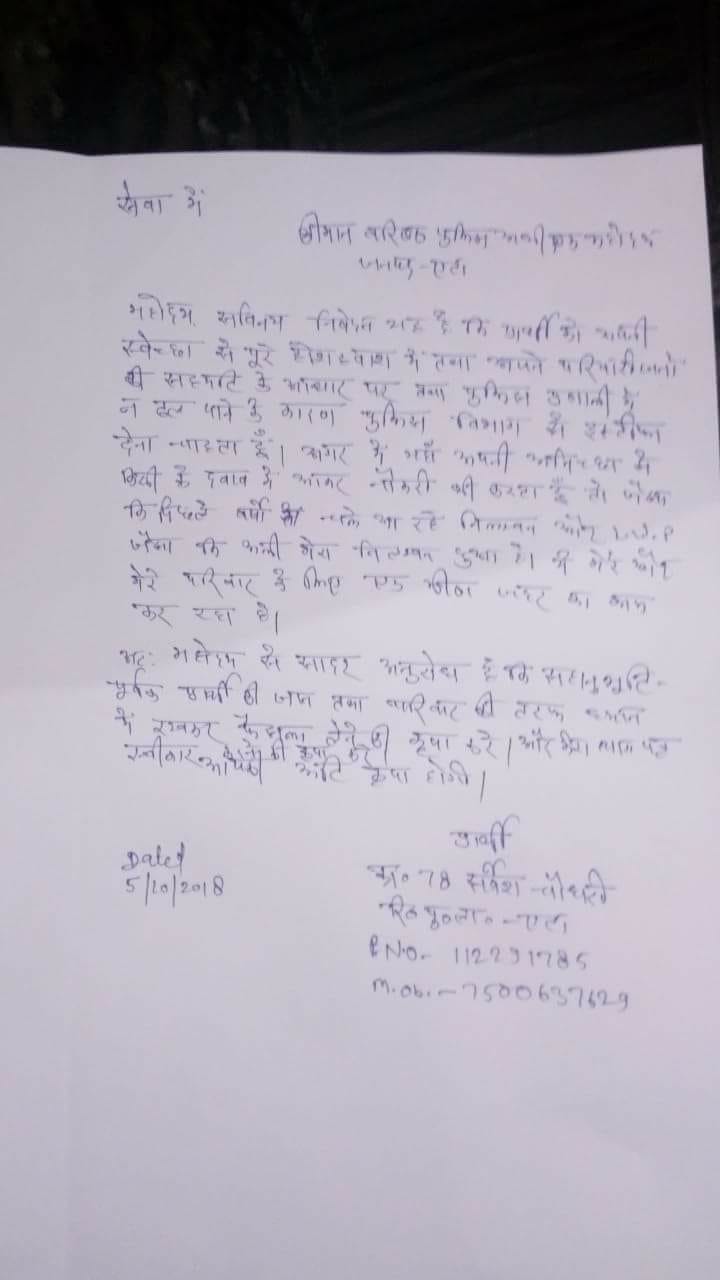 सेवा में
श्रीमान वरिष्ठ पुलिस अधीक्षक महोदय
जनपद-एटा
महोदय, सविनय निवेदन यह है कि प्रार्थी को अपनी
स्वेच्छा से पूरे होशहवाश में तथा अपने परिवारीजनों
की सहमति के आधार पर तथा पुलिस प्रणाली में
न ढल पाने के कारण पुलिस विभाग से इस्तीफा
देना चाहता हूँ। अगर में यहाँ अपनी अनिच्छा से
किसी के दवाब में आकर नौकरी की करता हूँ तो जैसा
कि पिछले वर्षों से चले आ रहे निलम्बन और
जैसा कि अभी मेरा निलम्बन हुआ है। मेरे और
मेरे परिवार के लिए एक जहर का काम
कर रहा है।
अतः महोदय से सादर अनुरोध है कि सहानुभूति-
पूर्वक प्रार्थी की तथा परिवार की तरफ ध्यान
में रखकर फैसला लेने की कृपा करे। और मेरा त्याग पत्र
स्वीकार करने की कृपा करें
आपकी अति कृपा होगी।
प्रार्थी
का० 78 सर्वेश चौधरी
रि० पु० ला० - एटा
P.NO.- 112291785
M.ob.- 7500637629
Dated
5/10/2018